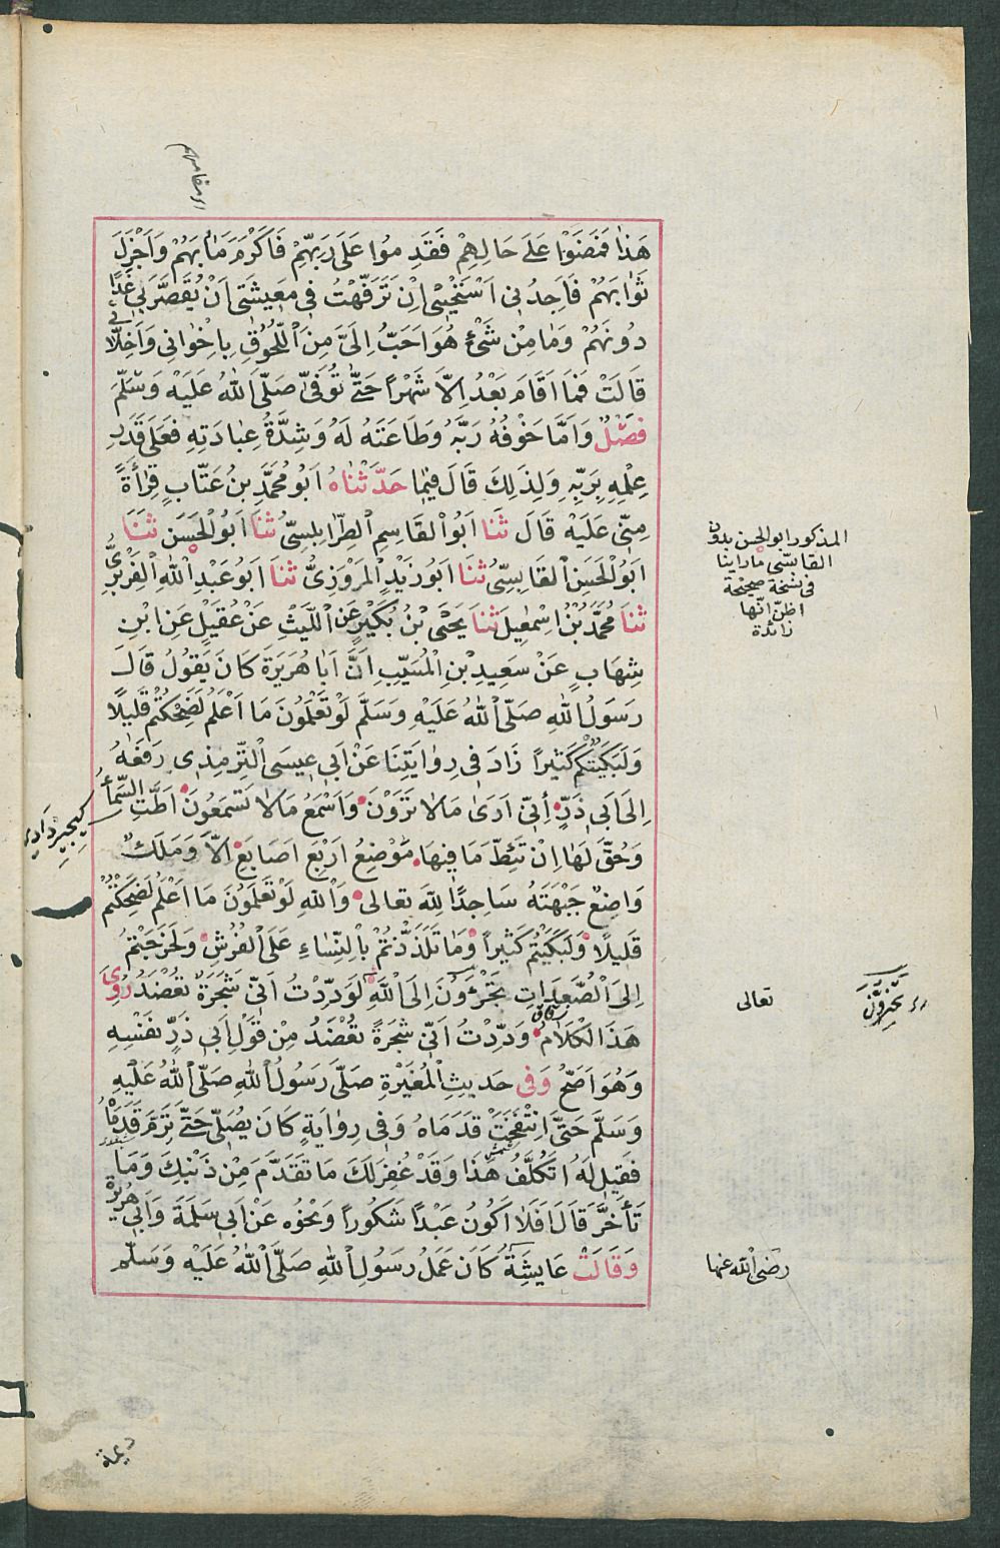 هَذٰا فَمَضَوْا عَلَى حَالِهِمْ فَقَدِ مُوا عَلَى رَبِّهِمْ فَاَكْرَمَ مَاٰبَهُمْ وَاَجْزَلَ
ثَوٰابَهُمْ فَاَجِدُنِى اَسْتَحْيِىْ اِنْ تَرَفَّهْتُ فِى مَعِيشَتِى اَنْ يُقَصَّرَ بِى غَدًا
دُونَهُمْ وَمٰا مِنْ شَىْءٍ هُوَ اَحَبُّ اِلَىَّ مِنَ اللُّحُوقِ بِاِخْوٰانِى وَاَخِلَّائِى
قَالَتْ فَمَا اَقَامَ بَعْدُ اِلَّا شَهْرًا حَتَّى تُوُفِّىَ صَلَّى اللهُ عَلَيْهِ وَسَلَّمَ
فَصْلٌ وَاَمَّا خَوْفُهُ رَبَّهُ وَطَاعَتُهُ لَهُ وَشِدَّةُ عِبَادَتِهِ فَعَلَى قَدَرِ
عِلْمِهِ بِرَبِّهِ وَلِذَلِكَ قَالَ فِيمَا حَدَّثَنَاهُ اَبُو مُحَمَّدِ بْنُ عَتَّابٍ قِرَاءَةً
مِنِّى عَلَيْهِ قَالَ ثَنَا اَبُو الْقَاسِمِ الطَّرَابُلِسِىُّ ثَنَا اَبُو الْحَسَنِ ثَنَا
اَبُو الْحَسَنِ الْقَابِسِىُّ ثَنَا اَبُو زَيْدٍ الْمَرْوَزِىُّ ثَنَا اَبُو عَبْدِ اللهِ الْفِرَبْرِىُّ
ثَنَا مُحَمَّدُ بْنُ اِسْمٰعِيلَ ثَنَا يَحْيَى بْنُ بُكَيْرٍ عَنِ اللَّيْثِ عَنْ عُقَيْلٍ عَنِ ابْنِ
شِهَابٍ عَنْ سَعِيدِ بْنِ الْمُسَيِّبِ اِنَّ اَبَا هُرَيْرَةَ كَانَ يَقُولُ قَالَ
رَسُولُ اللهِ صَلَّى اللهُ عَلَيْهِ وَسَلَّمَ لَوْ تَعْلَمُونَ مَا اَعْلَمُ لَضَحِكْتُمْ قَلِيلًا
وَلَبَكَيْتُمْ كَثِيرًا زَادَ فِى رِوٰايَتِنَا عَنْ اَبِى عِيسَى التِّرْمِذِى رَفَعَهُ
اِلَى اَبِى ذَرٍّ اِنِّى اَرَىٰ مَالَا تَرَوْنَ وَاَسْمَعُ مَالَا تَسْمَعُونَ اَطَّتِ السَّمَاءُ
وَحُقَّ لَهَا اِنْ تَئِطَّ مَا فِيهَا مَوْضِعُ اَرْبَعِ اَصَابِعَ اِلَّا وَمَلَكٌ
وَاضِعٌ جَبْهَتَهُ سَاجِدًا لِلّٰهِ تعالى وَاللهِ لَوْ تَعْلَمُونَ مَا اَعْلَمُ لَضَحِكْتُمْ
قَلِيلًا وَلَبَكَيْتُمْ كَثِيرًا وَمَا تَلَذَّذْتُمْ بِالنِّسَاءِ عَلَى الْفُرُشِ وَلَخَرَجْتُمْ
اِلَى الصُّعُدَاتِ تَجْئَرُونَ اِلَى اللهِ لَوَدِدْتُ اَنِّى شَجَرَةٌ تُعْضَدُ رُوِىَ
هَذَا الْكَلَامُ وَدِدْتُ اَنِّى شَجَرَةٌ تُعْضَدُ مِنْ قَوْلِ اَبِى ذَرٍّ نَفْسِهِ
وَهُوَ اَصَحُّ وَفِى حَدِيثِ الْمُغِيرَةِ صَلَّى رَسُولُ اللهِ صَلَّى اللهُ عَلَيْهِ
وَسَلَّمَ حَتَّى انْتَفَخَتْ قَدَمَاهُ وَفِى رِوٰايَةٍ كَانَ يُصَلِّى حَتَّى تَرِمَ قَدَمَاهُ
فَقِيلَ لَهُ اَتَكَلَّفُ هَذَا وَقَدْ غُفِرَ لَكَ مَا تَقَدَّمَ مِنْ ذَنْبِكَ وَمَا
تَأَخَّرَ قَالَ اَفَلَا اَكُونُ عَبْدًا شَكُورًا وَنَحْوُه عَنْ اَبِى سَلَمَةَ وَاَبِى هُرَيْرَةَ
وَقَالَتْ عَايِشَةُ كَانَ عَمَلُ رَسُولِ اللهِ صَلَّى اللهُ عَلَيْهِ وَسَلَّمَ
المذكور ابو الحسن بدون
القابسّى ماراينا
فى نسخة صحيحة
اظنّ انّها
زائدة
تعالى
رضى الله عنها
ديمة